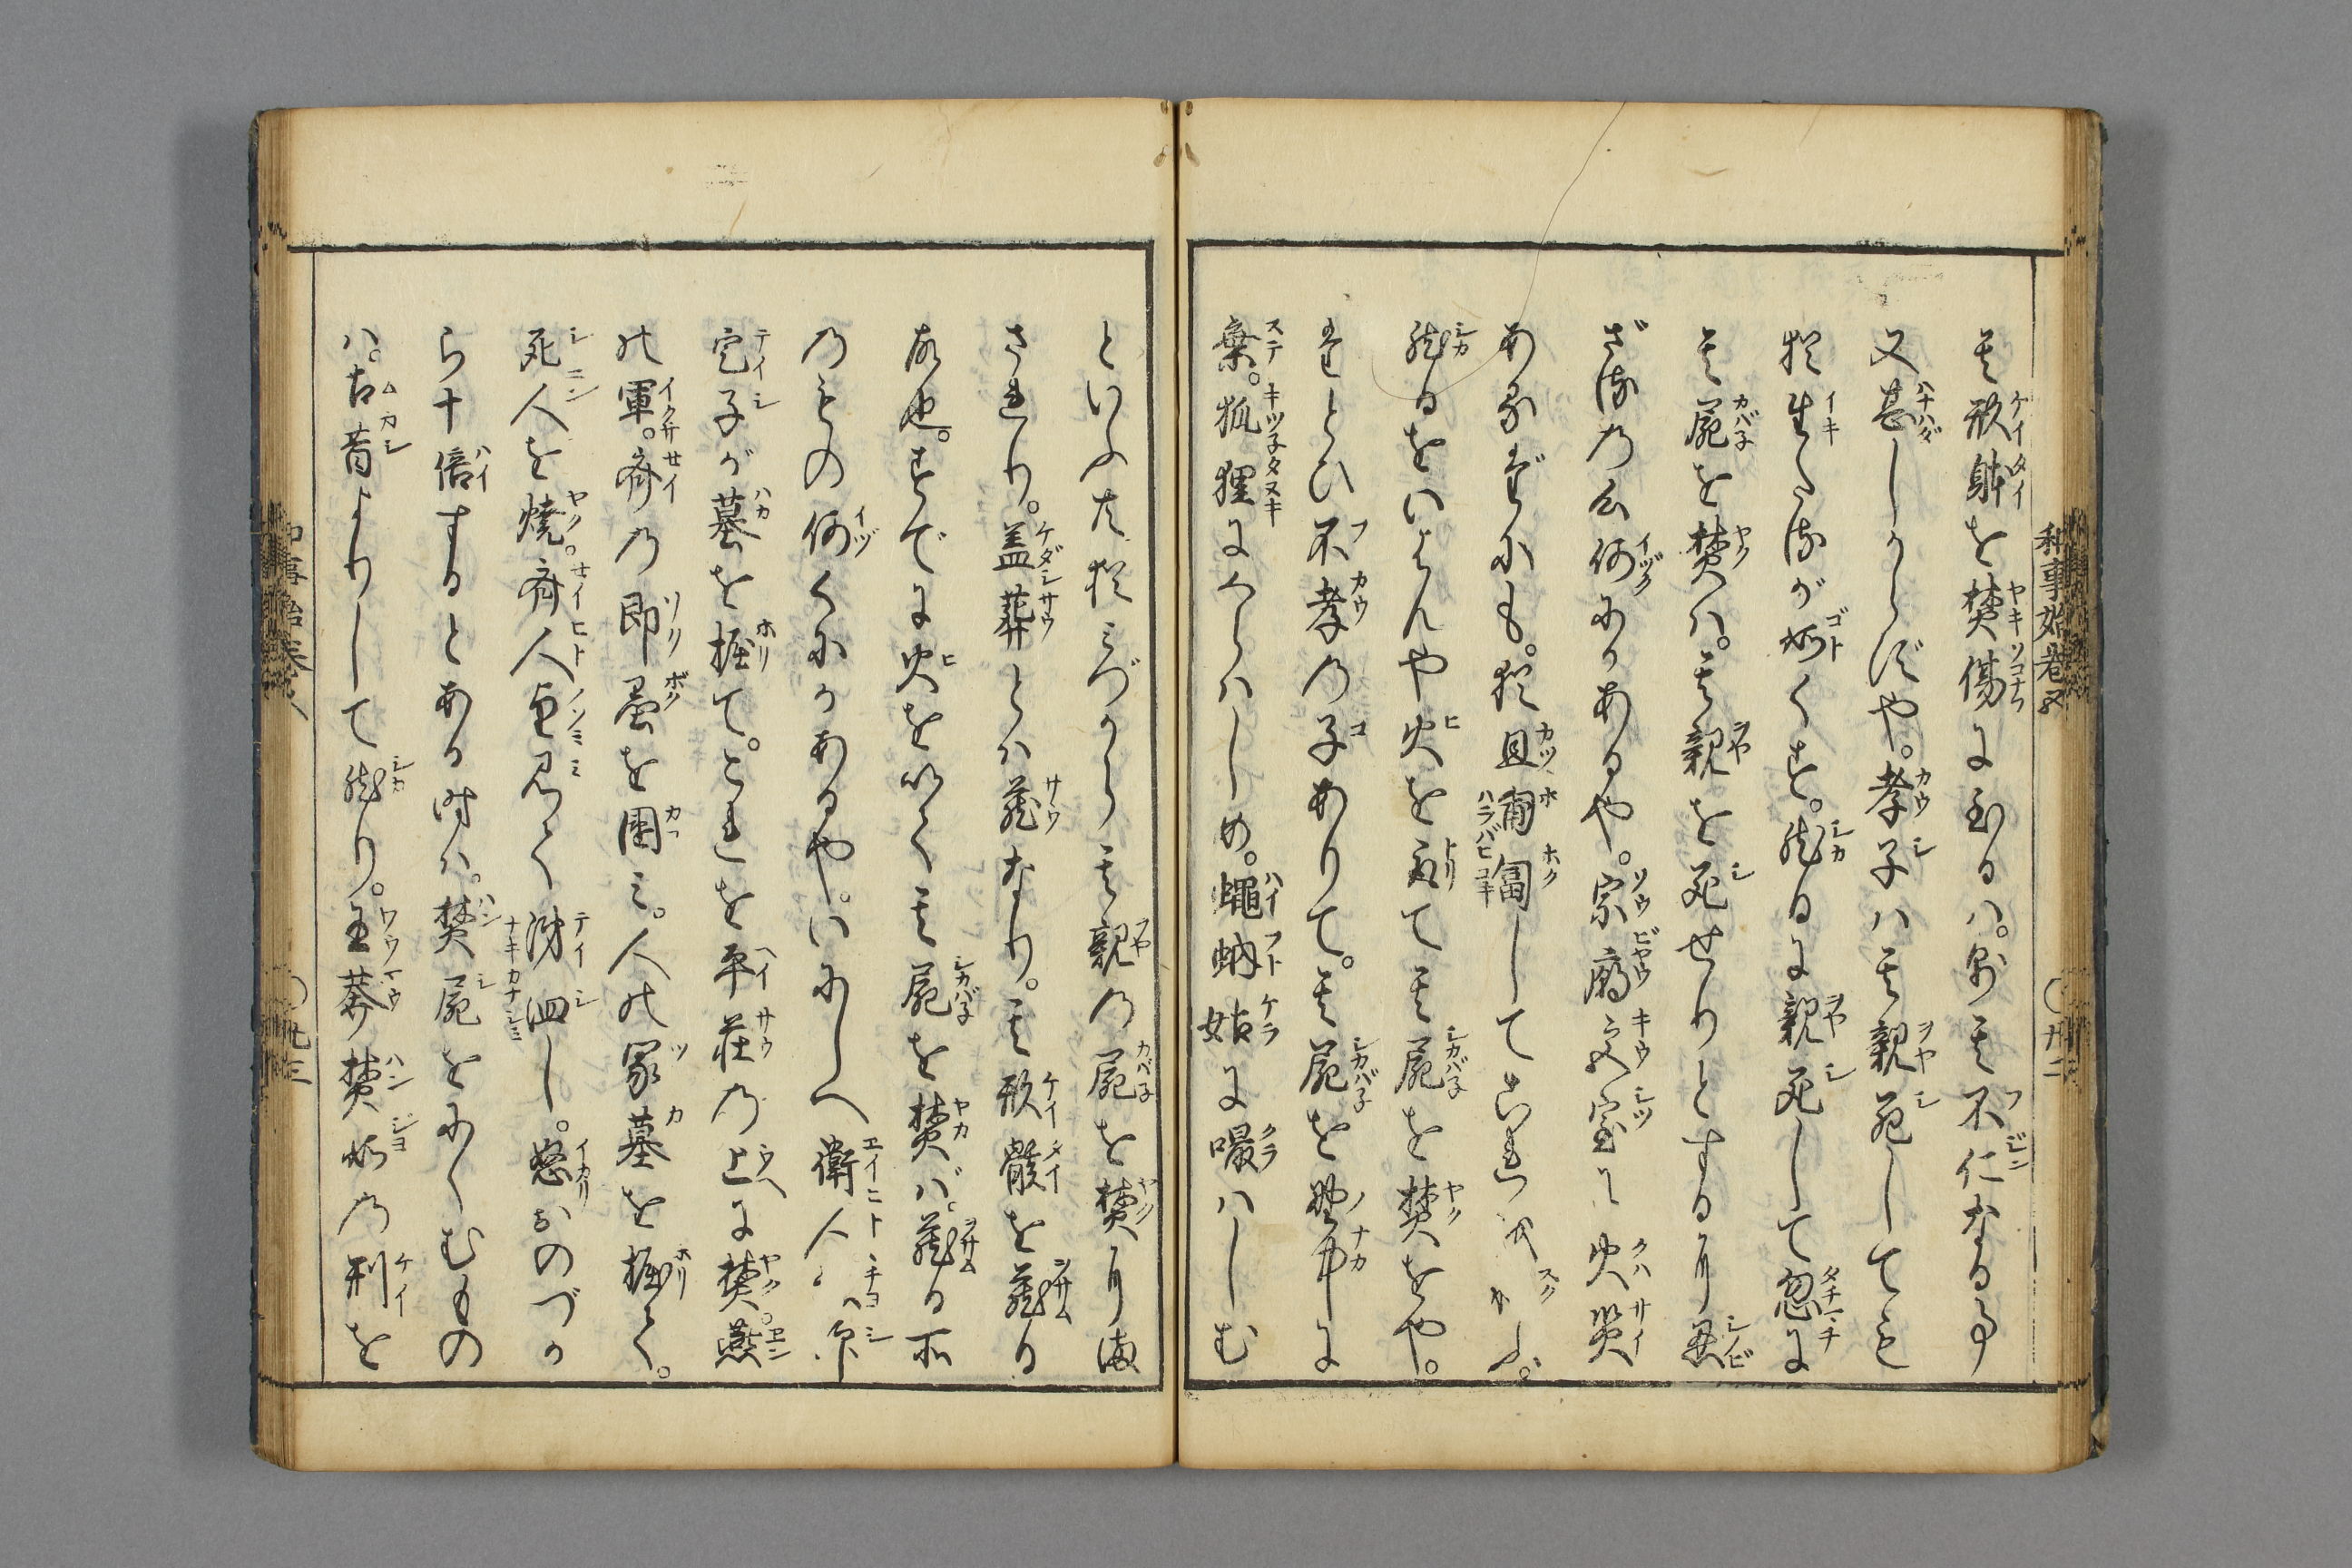 和事始巻四
〇廿二
其形躰を焚傷に至るハ。則其不仁なる事
又甚しからずや。孝子ハ其親死しても
猶生たるが如くす。然るに親死して忽に
其屍を焚ハ。其親を死せりとするに忍
ざるの心何にかあるや。宗廟宮室に火災
あるだにも。猶且匍匐してこれをすくふ。
然るをいはんや火を取て其屍を焚をや。
たとひ不孝の子ありて。其屍を野中に
棄。狐狸にくらハしめ。蠅蚋姑に嘬ハしむ
といふ共猶みづから其親の屍を焚に ハ
されり。蓋葬とハ蔵なり。其形骸を蔵る
故也。すでに火を以て其屍を焚バ。蔵る所
のもの何くにかあるや。いにしへ衛人ハ
定子が墓を掘て。これを平荘の上に焚。燕
の軍。斉の即墨を囲ミ。人の冢墓を掘て。
死人を焼。斉人望見て涕泗し。怒おのづか
ら十倍するとある時ハ。焚屍をにくむもの
ハ。古昔よりして然り。王莽焚如の刑を